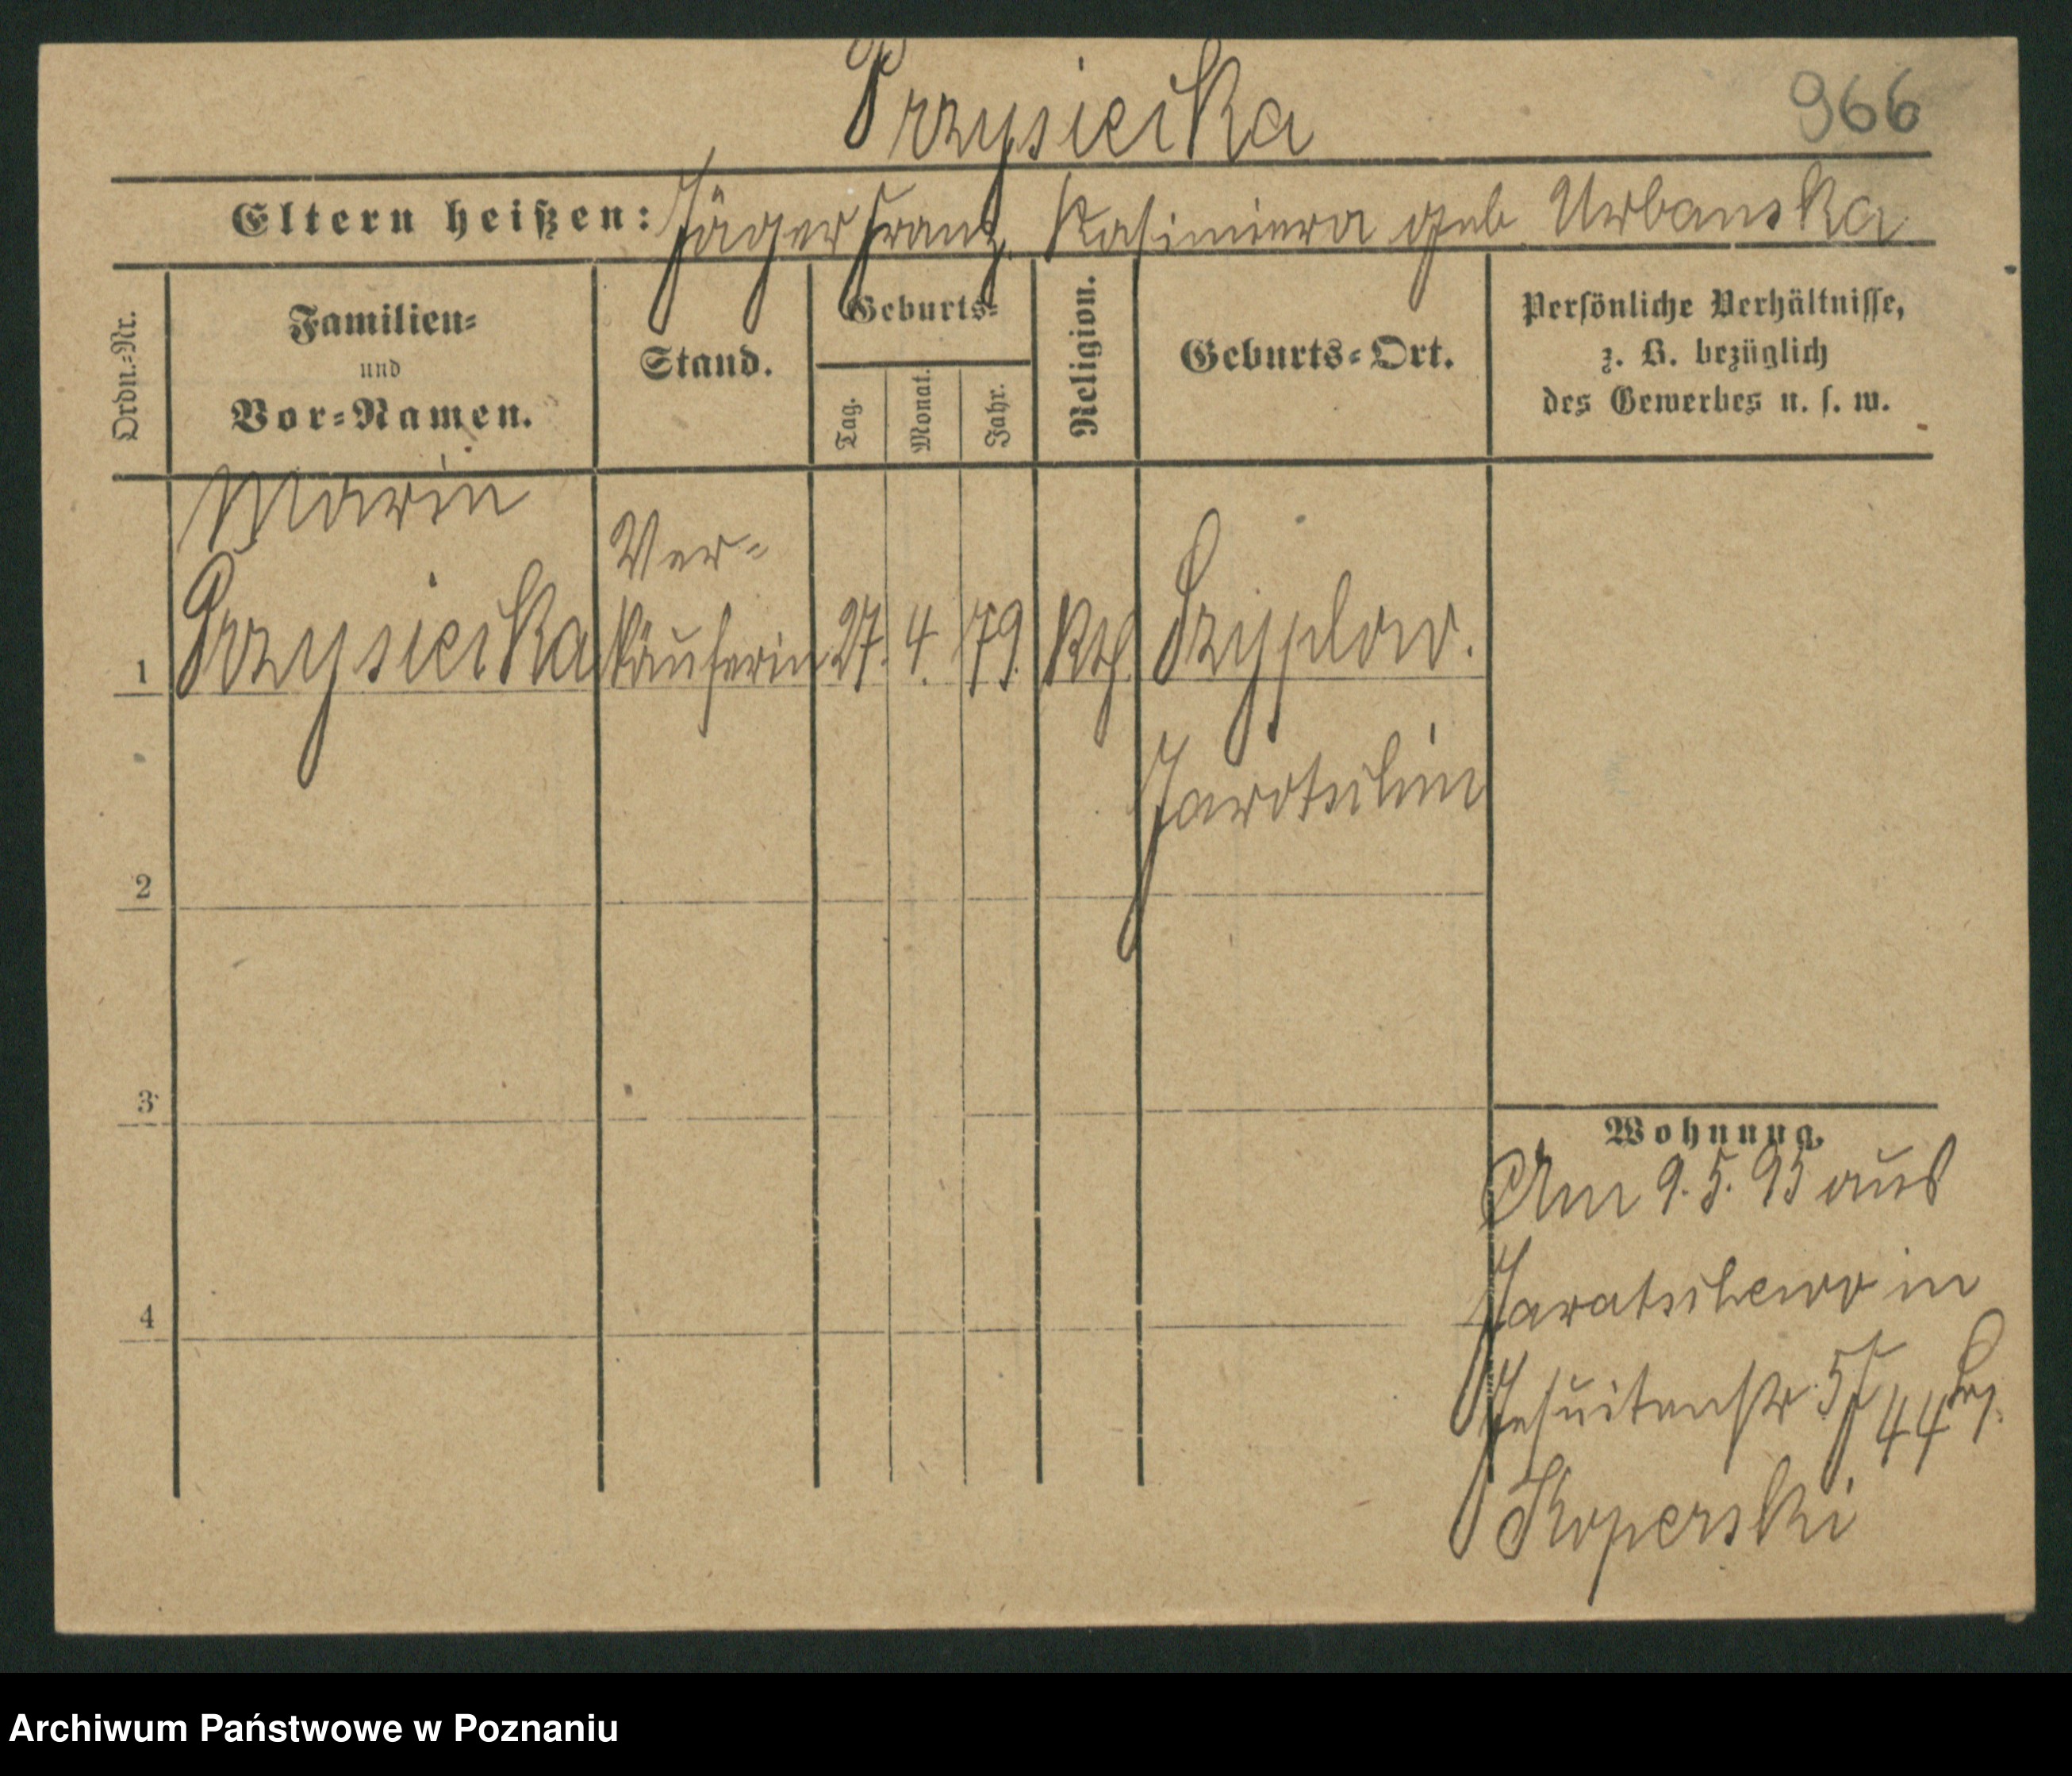 Przysiecka
966
Eltern heißen: Jäger Franz, Kasimiera geb. Urbanska
Ordn.-Nr.
Familien-
und
Vor-Namen.
Stand.
Geburts-
Tag.
Monat.
Jahr.
Religion.
Geburts-Ort.
Persönliche Verhältnisse,
z. B. bezüglich
des Gewerbes u. s. w.
Marie
Ver-
1 Przysiecka käuferin 27. 4. 79. kth. Szyplow.
Jarotschin
2
3
Wohnung.
Am 9. 5. 95 aus
Jaratschewo in
4
Jesuitenstr 5 I
44
Koperski
Archiwum Państwowe w Poznaniu